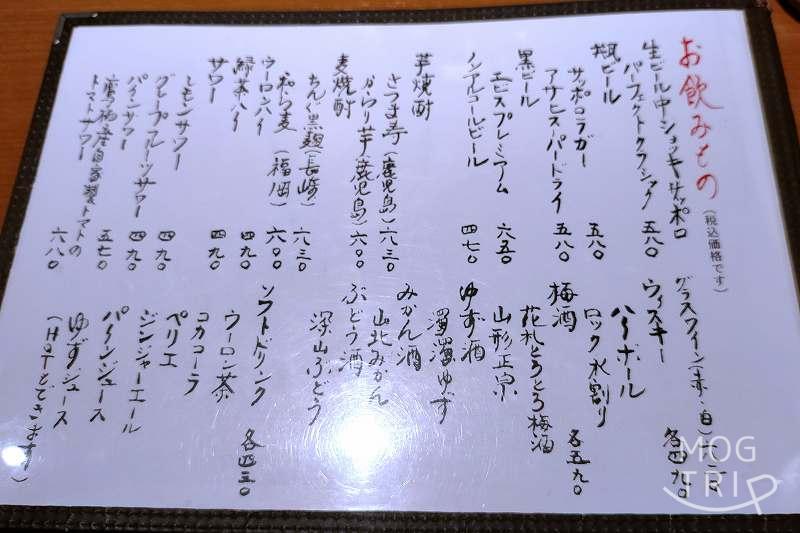 お飲みもの
(税込価格です)
生ビール中ジョッキサッポロ
パーフェクトクラシック 五八〇
瓶ビール
サッポロラガー 五八〇
アサヒスーパードライ 五八〇
黒ビール
エビスプレミアム 六五〇
ノンアルコールビール 四七〇
芋焼酎
さつま寿(鹿児島) 六三〇
からり芋(鹿児島) 六〇〇
麦焼酎
ちんぐ黒麹(長崎) 六三〇
和ら麦(福岡) 六〇〇
ウーロンハイ 四九〇
緑茶ハイ 四九〇
サワー
レモンサワー 四九〇
グレープフルーツサワー 四九〇
パインサワー 五七〇
自家製トマトの
トマトサワー 六八〇
グラスワイン(赤・白)
ウィスキー
ハイボール
ロック 水割り 各四九〇
梅酒
花札とろとろ梅酒 各五九〇
山形正宗
ゆず酒
濁濁ゆず
みかん酒
山北みかん
ぶどう酒
深山ぶどう
ソフトドリンク 各四三〇
ウーロン茶
コカコーラ
ペリエ
ジンジャーエール
パインジュース
ゆずジュース
(HOTもできます)
MOG
TRIP